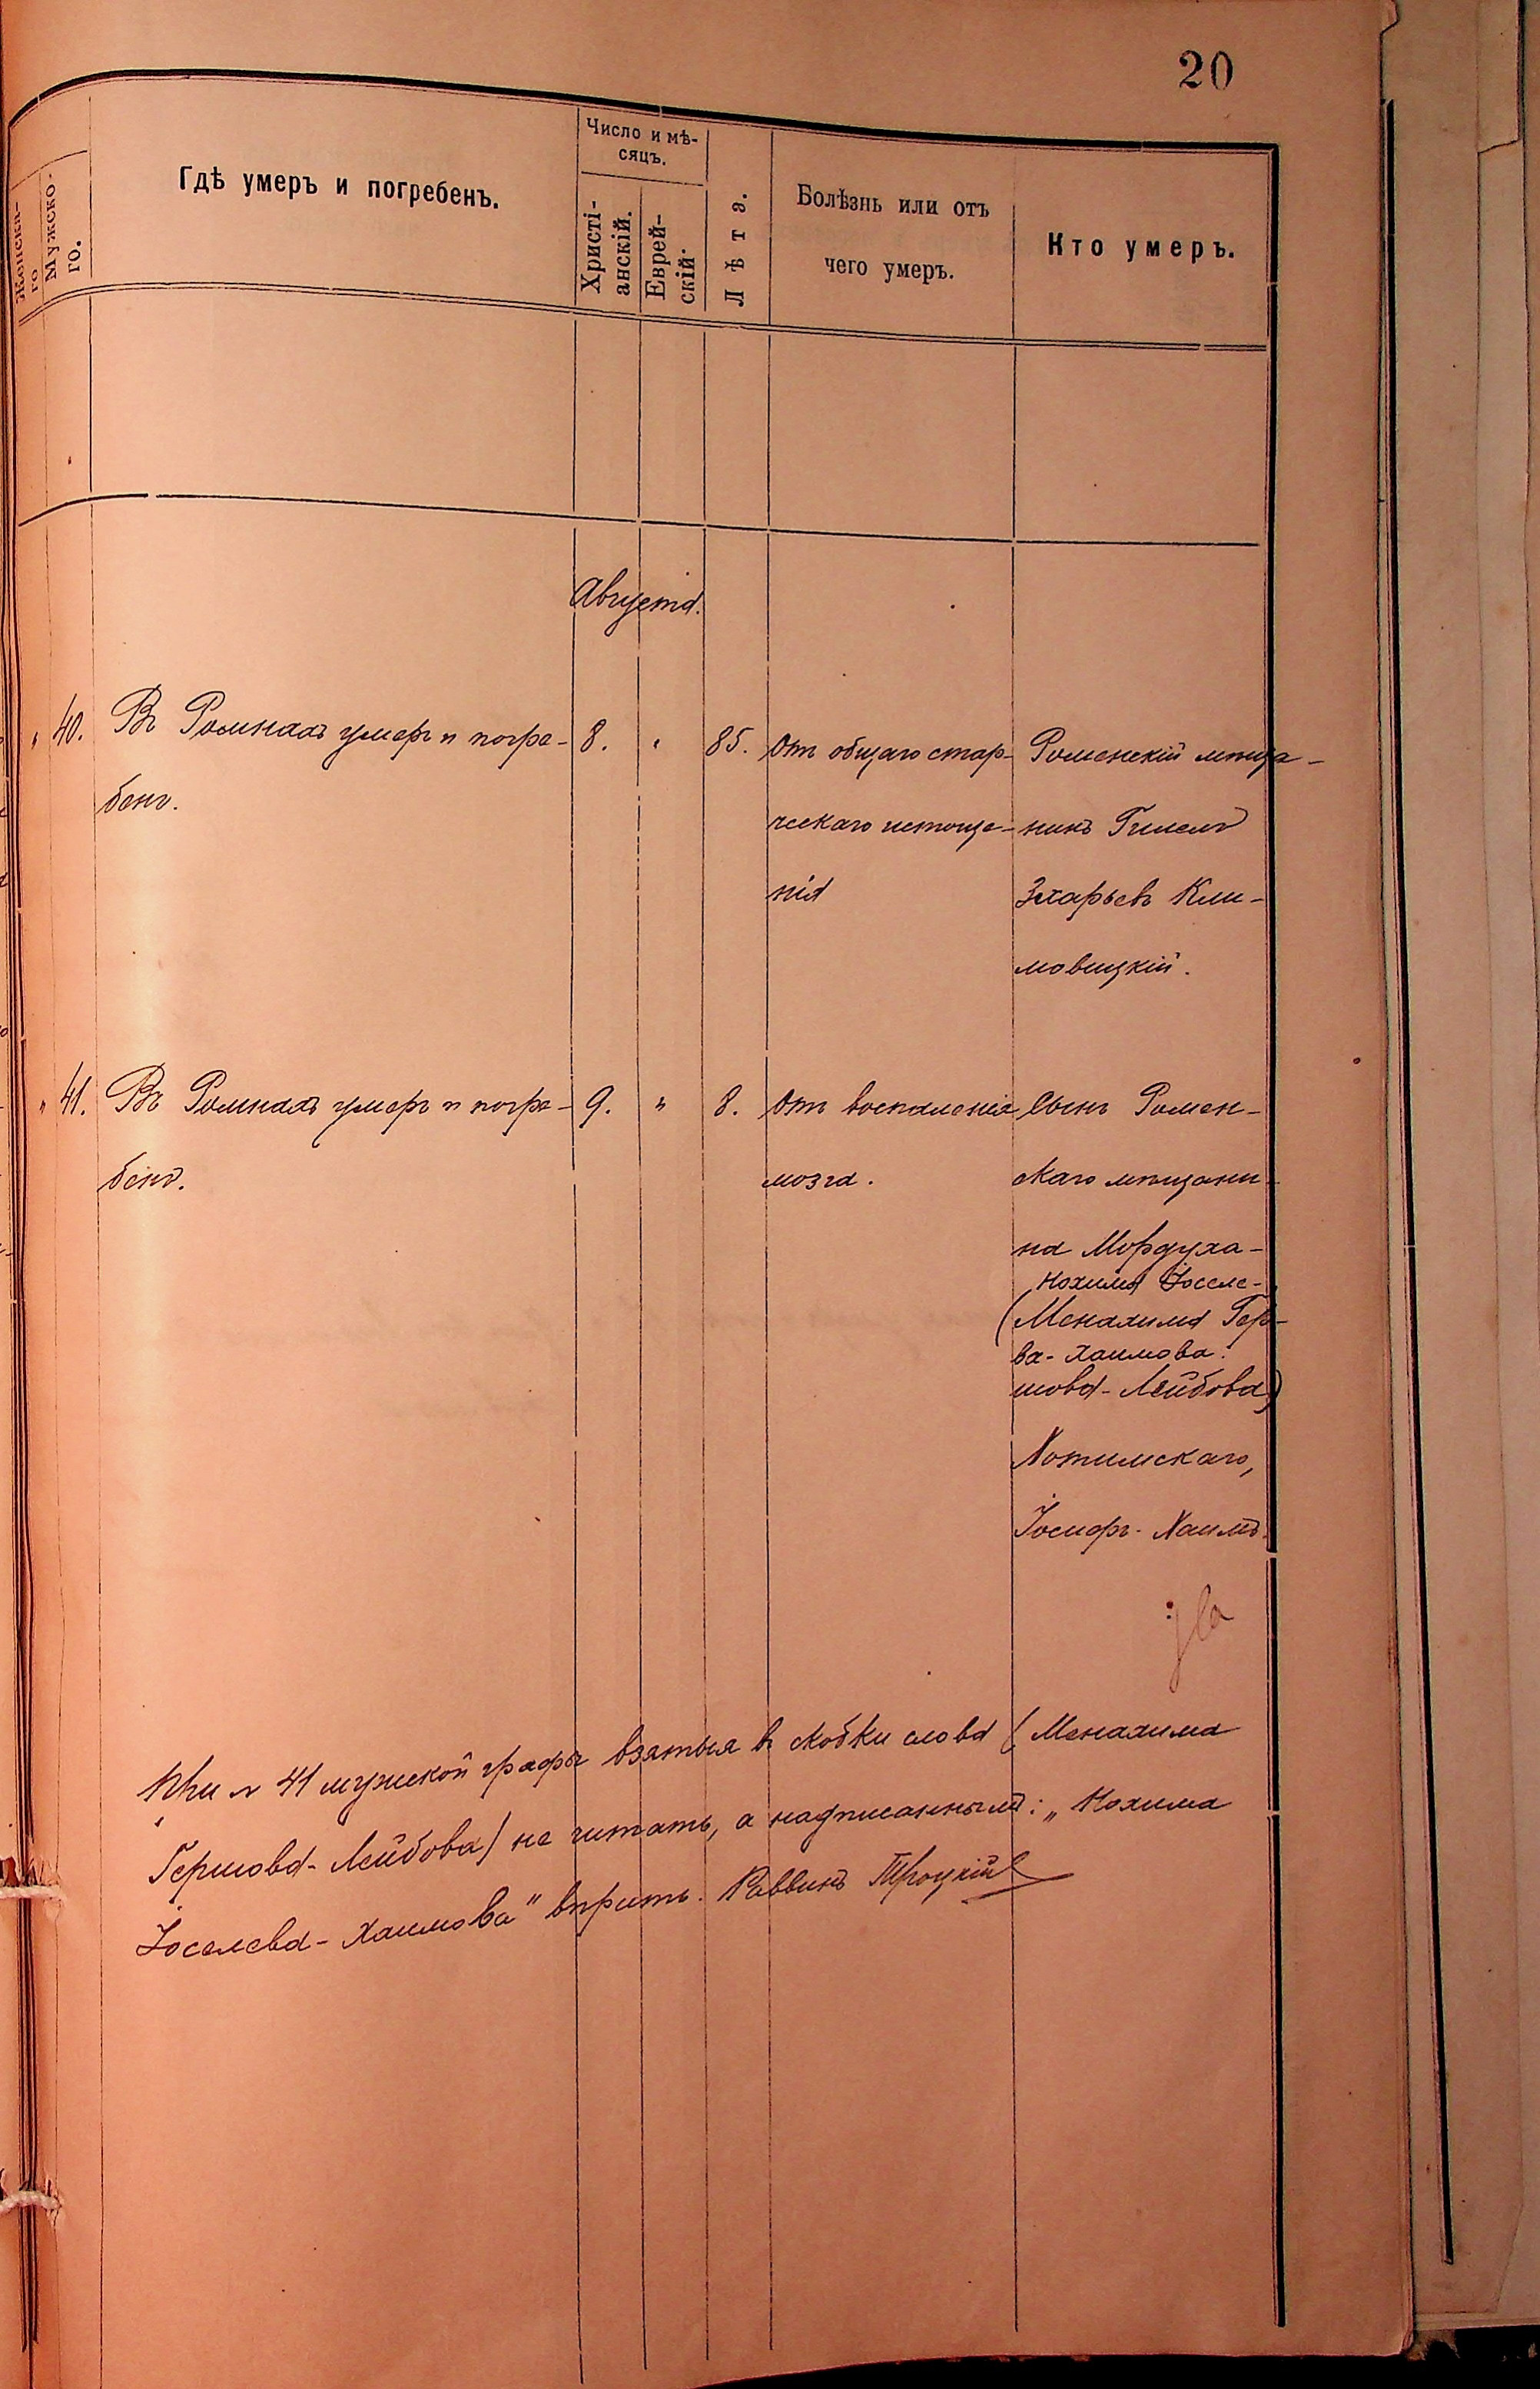 20
Женска-
го
Мужско-
го.
Гдѣ умеръ и погребенъ.
Число и мѣ-
сяцъ.
Христі-
анскій.
Еврей-
скій.
Лѣта.
Болѣзнь или отъ
чего умеръ.
Кто умеръ.
Августа.
" 40. Въ Ромнахъ умеръ и погре- 8. " 85. Отъ общаго стар- Роменскій мѣща-
бенъ. ческаго истоще- нинъ Гилелъ
нія Захарьевъ Кли-
мовицкій.
" 41. Въ Ромнахъ умеръ и погре- 9. " 8. Отъ воспаленія Сынъ Ромен-
бенъ. мозга. скаго мѣщани-
на Мордуха-
Нохима Іоселе-
(Менахима Гер-
ва-Хаимова.
шова-Лейбова)
Хотимскаго,
Іосифъ-Хаимъ.
При № 41 мужской графы взятыя въ скобки слова (Менахима
Гершова-Лейбова) не читать, а надписаннымъ: „Нохима
Іоселева-Хаимова" вѣрить. Раввинъ Троцкій